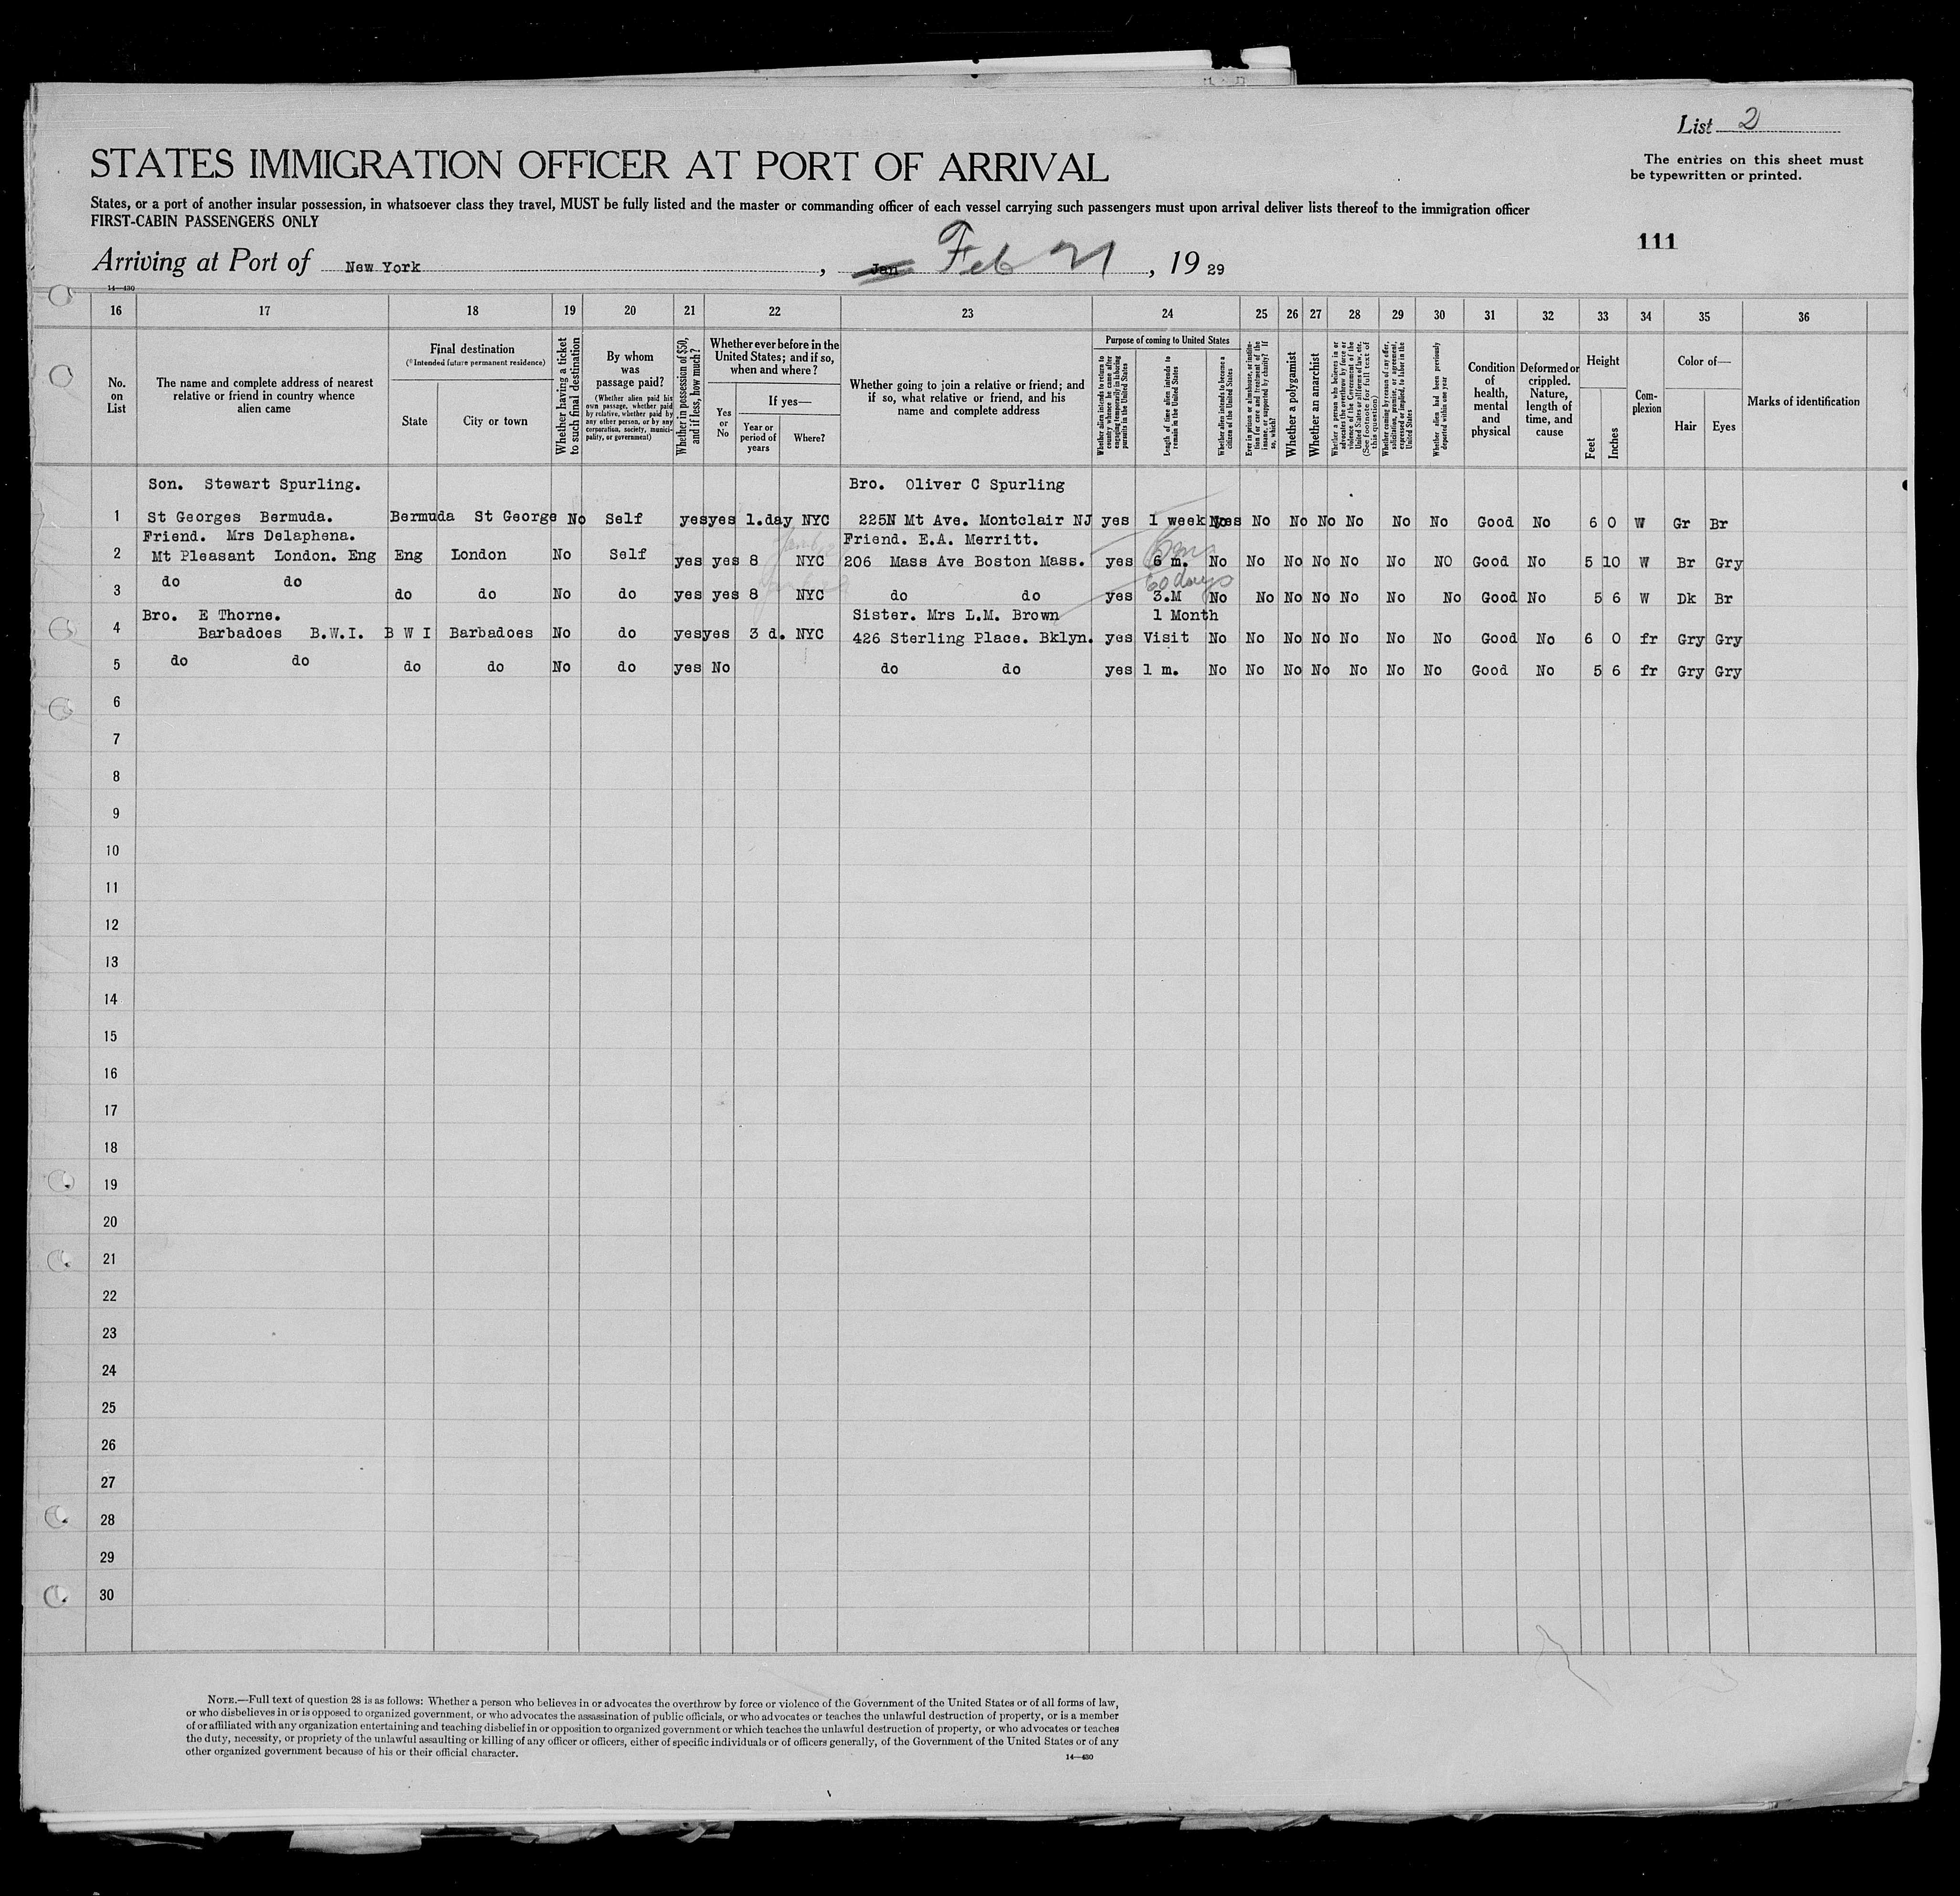 List 2
STATES IMMIGRATION OFFICER AT PORT OF ARRIVAL
The entries on this sheet must
be typewritten or printed.
States, or a port of another insular possession, in whatsoever class they travel, MUST be fully listed and the master or commanding officer of each vessel carrying such passengers must upon arrival deliver lists thereof to the immigration officer
FIRST-CABIN PASSENGERS ONLY
111
Arriving at Port of New York, Jan Feb 21, 19 29
14—430
16 17 18 19 20 21 22 23 24 25 26 27 28 29 30 31 32 33 34 35 36
No. on List
The name and complete address of nearest relative or friend in country whence alien came
Final destination
(*Intended future permanent residence)
State
City or town
Whether having a ticket to such final destination
By whom was passage paid?
(Whether alien paid his own passage, whether paid by relative, whether paid by any other person, or by any corporation, society, municipality, or government)
Whether in possession of $50, and if less, how much?
Whether ever before in the United States; and if so, when and where?
Yes or No
If yes—
Year or period of years
Where?
Whether going to join a relative or friend; and if so, what relative or friend, and his name and complete address
Purpose of coming to United States
Whether alien intends to return to country whence he came after engaging temporarily in laboring pursuits in the United States
Length of time alien intends to remain in the United States
Whether alien intends to become a citizen of the United States
Ever in prison or almshouse, or institution for care and treatment of the insane, or supported by charity? If so, which?
Whether a polygamist
Whether an anarchist
Whether a person who believes in or advocates the overthrow by force or violence of the Government of the United States or all forms of law, etc. (See footnote for full text of this question)
Whether coming by reason of any offer, solicitation, promise, or agreement, expressed or implied, to labor in the United States
Whether alien had been previously deported within one year
Condition of health, mental and physical
Deformed or crippled. Nature, length of time, and cause
Height
Feet
Inches
Complexion
Color of—
Hair
Eyes
Marks of identification
Son. Stewart Spurling. Bro. Oliver C Spurling
1 St Georges Bermuda. Bermuda St George No Self yes yes 1.day NYC 225N Mt Ave. Montclair NJ yes 1 week No No No No No No Good No 6 0 W Gr Br
Friend. Mrs Delaphena. Friend. E.A. Merritt.
2 Mt Pleasant London. Eng Eng London No Self yes yes 8 NYC 206 Mass Ave Boston Mass. yes 6 m. 6m No No No No No No NO Good No 5 10 W Br Gry
60 days
3 do do do do No do yes yes 8 NYC do do yes 3.M No No No No No No No Good No 5 6 W Dk Br
Bro. E Thorne. Sister. Mrs L.M. Brown 1 Month
4 Barbadoes B.W.I. B W I Barbadoes No do yes yes 3 d. NYC 426 Sterling Place. Bklyn. yes Visit No No No No No No No Good No 6 0 fr Gry Gry
5 do do do do No do yes No do do yes 1 m. No No No No No No No Good No 5 6 fr Gry Gry
6
7
8
9
10
11
12
13
14
15
16
17
18
19
20
21
22
23
24
25
26
27
28
29
30
NOTE.—Full text of question 28 is as follows: Whether a person who believes in or advocates the overthrow by force or violence of the Government of the United States or of all forms of law,
or who disbelieves in or is opposed to organized government, or who advocates the assassination of public officials, or who advocates or teaches the unlawful destruction of property, or is a member
of or affiliated with any organization entertaining and teaching disbelief in or opposition to organized government or which teaches the unlawful destruction of property, or who advocates or teaches
the duty, necessity, or propriety of the unlawful assaulting or killing of any officer or officers, either of specific individuals or of officers generally, of the Government of the United States or of any
other organized government because of his or their official character.
14—430